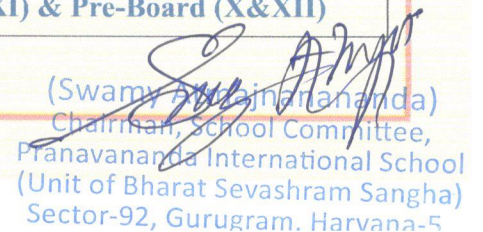 XI) & Pre-Board (X&XII)
(Swamy
Chairman, School Committee,
Pranavananda International School
(Unit of Bharat Sevashram Sangha)
Sector-92, Gurugram, Haryana-5